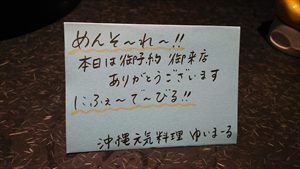 めんそ～れ～!!
本日は御予約 御来店
ありがとうございます
にふぇ～で～びる!!
沖縄元気料理 ゆいまーる